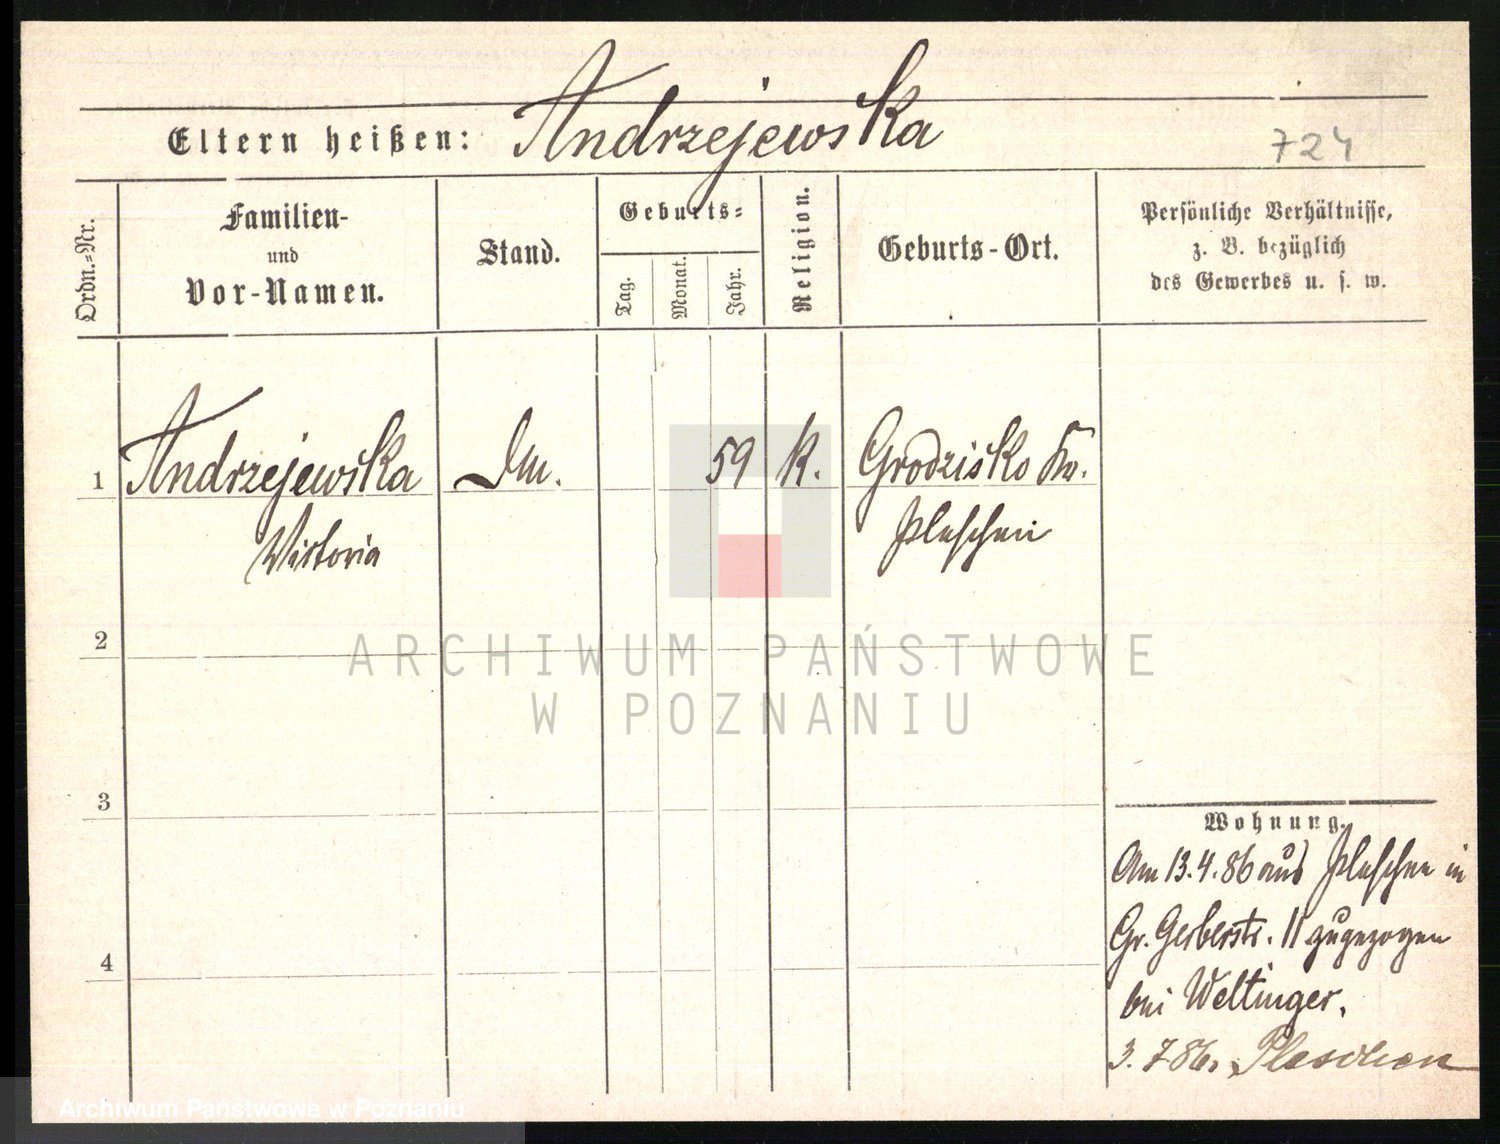 Eltern heißen: Andrzejewska
724
Ordn.-Nr.
Familien-
und
Vor-Namen.
Stand.
Geburts-
Tag.
Monat.
Jahr.
Religion.
Geburts-Ort.
Persönliche Verhältnisse,
z. B. bezüglich
des Gewerbes u. s. w.
1 Andrzejewska 59 K. Grodzisko Kr.
Wiktoria Pleschen
2
3
4
Wohnung.
Am 13.4.86 aus Pleschen in
Gr. Gerberstr. 11 zugezogen
bei Weltinger.
3.7.86. Pleschen
ARCHIWUM PAŃSTWOWE
W POZNANIU
Archiwum Państwowe w Poznaniu